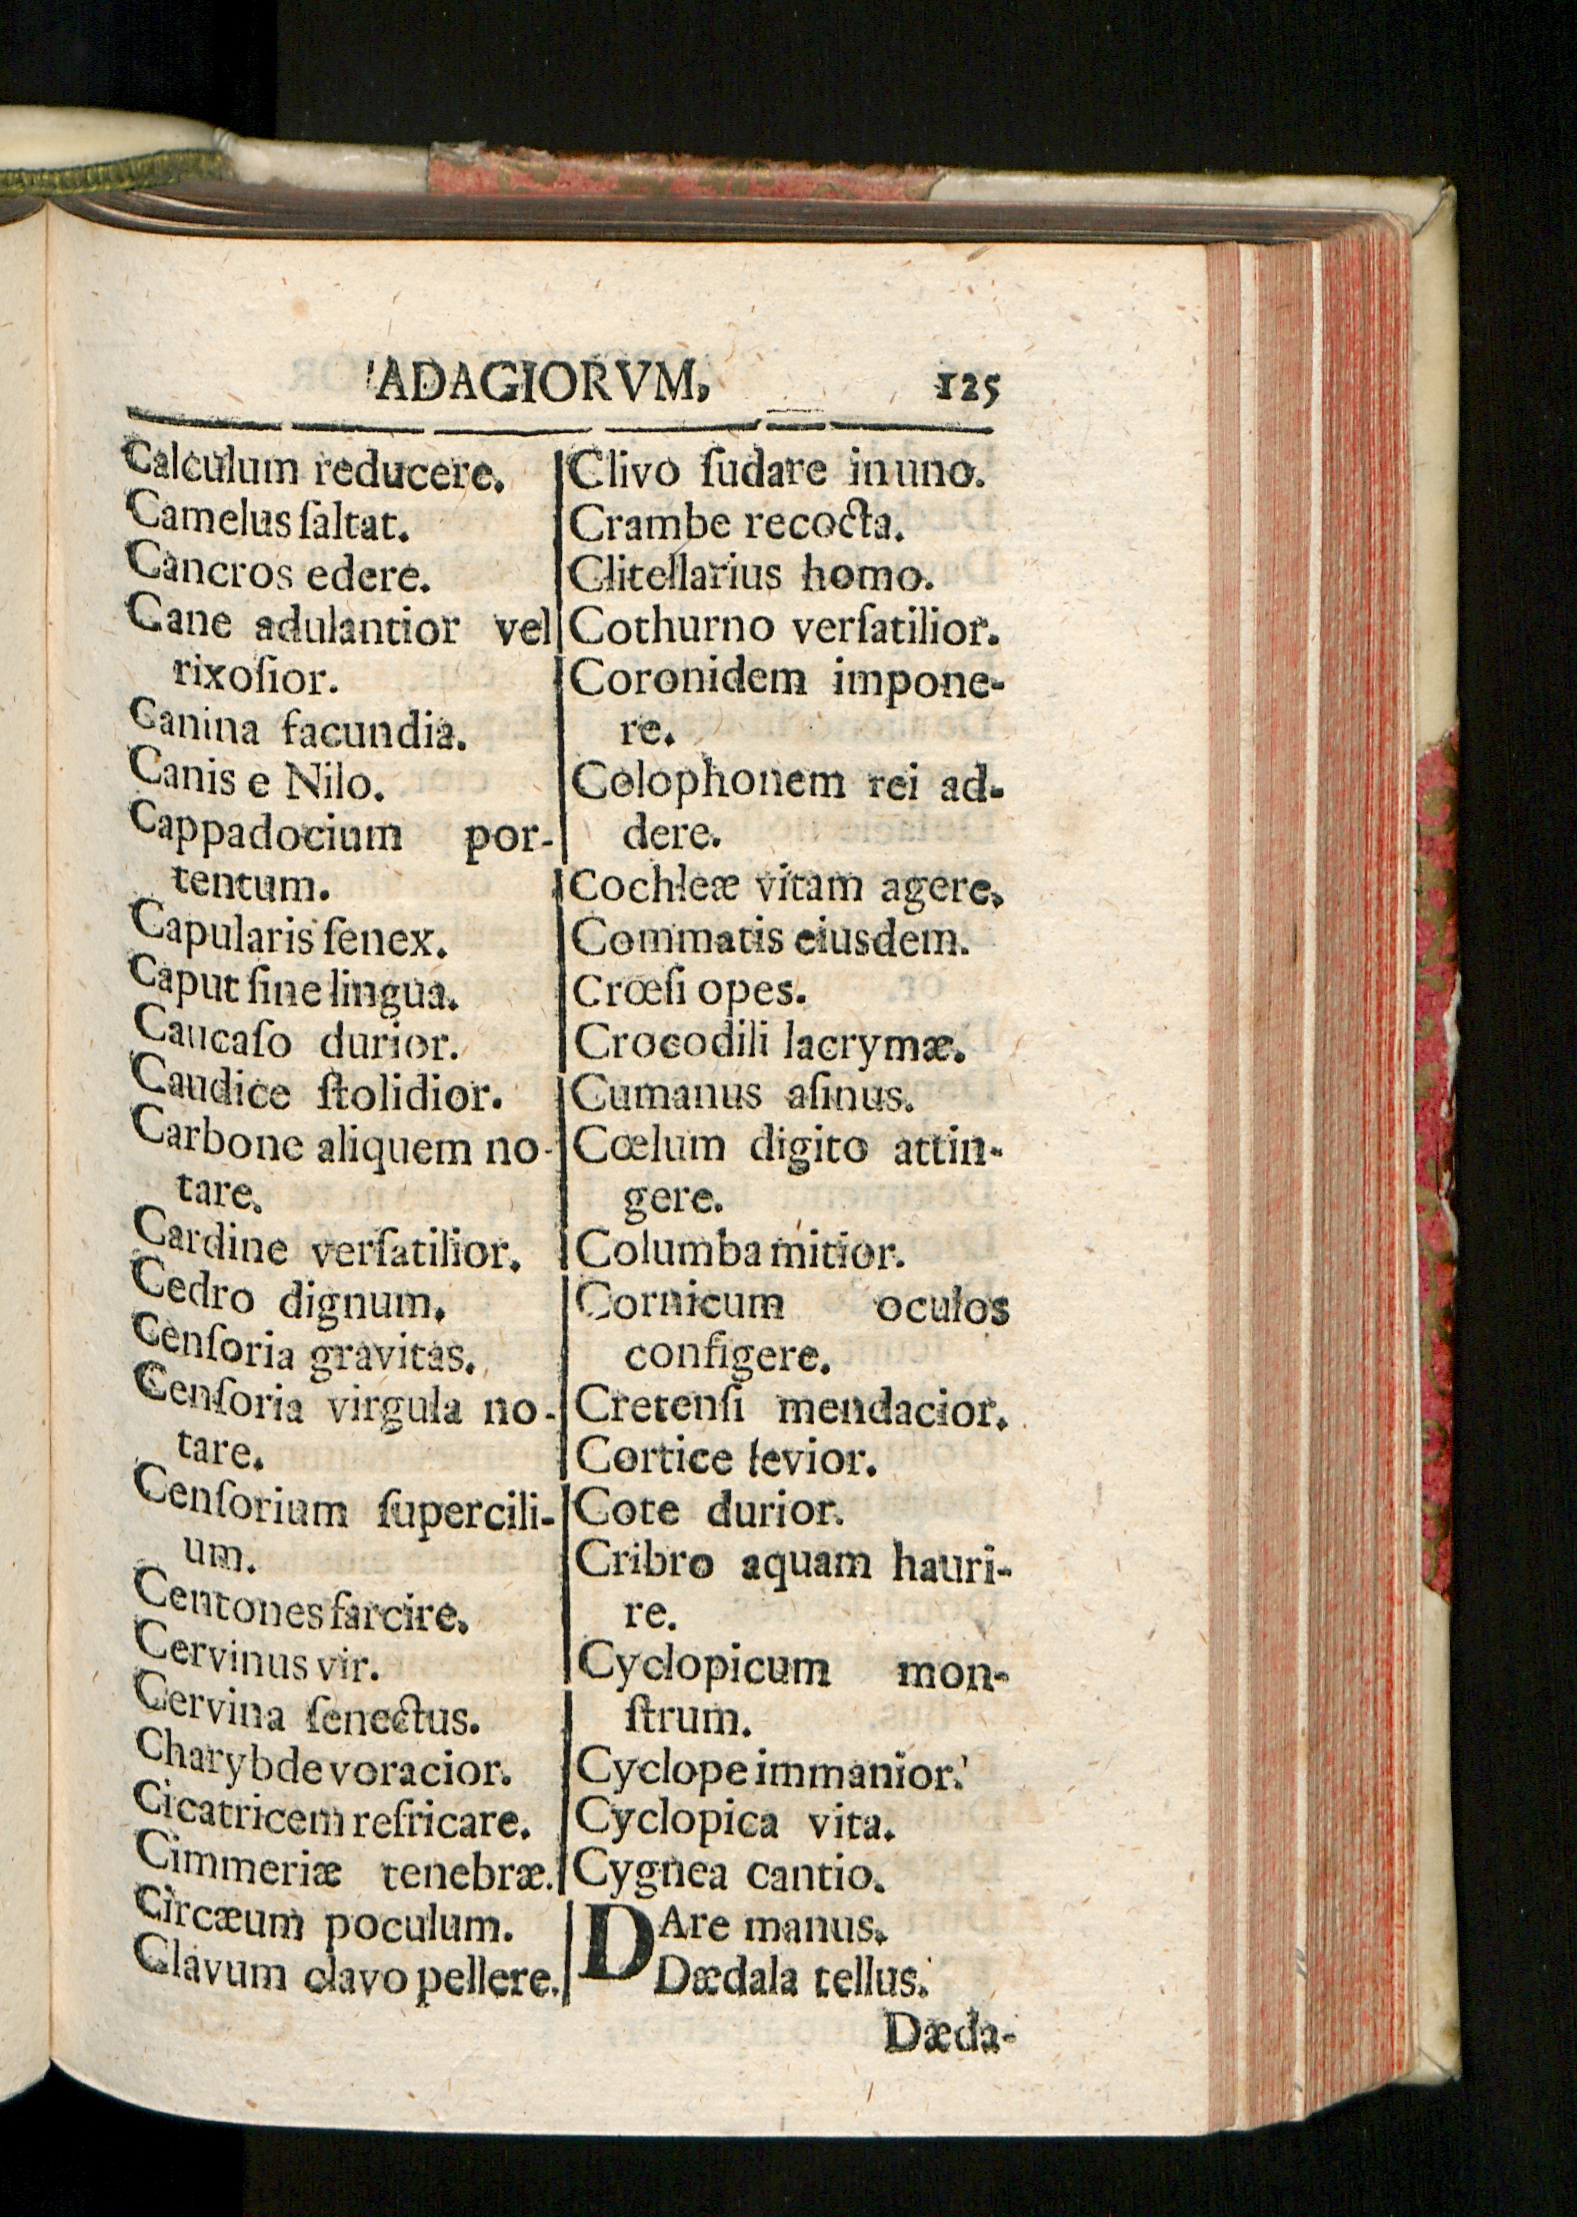 ADAGIORVM, 125
Calculum reducere.
Camelus ſaltat.
Cancros edere.
Cane adulantior vel
rixoſior.
Canina facundia.
Canis e Nilo.
Cappadocium por-
tentum.
Capularis ſenex.
Caput ſine lingua.
Caucaſo durior.
Caudice ſtolidior.
Carbone aliquem no-
tare.
Cardine verſatilior.
Cedro dignum.
Cenſoria gravitas.
Cenſoria virgula no-
tare.
Cenſorium ſupercili-
um.
Centones farcire.
Cervinus vir.
Cervina ſenectus.
Charybde voracior.
Cicatricem refricare.
Cimmeriæ tenebræ.
Circæum poculum.
Clavum clavo pellere.
Clivo ſudare in uno.
Crambe recocta.
Clitellarius homo.
Cothurno verſatilior.
Coronidem impone-
re.
Colophonem rei ad-
dere.
Cochleæ vitam agere.
Commatis eiusdem.
Crœſi opes.
Crocodili lacrymæ.
Cumanus aſinus.
Cœlum digito attin-
gere.
Columba mitior.
Cornicum oculos
configere.
Cretenſi mendacior.
Cortice levior.
Cote durior.
Cribro aquam hauri-
re.
Cyclopicum mon-
ſtrum.
Cyclope immanior.
Cyclopica vita.
Cygnea cantio.
DAre manus.
Dædala tellus.
Dæda-